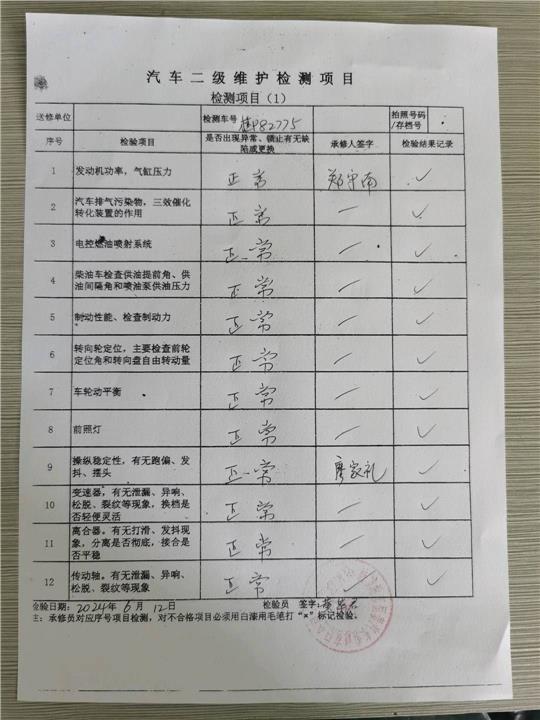 汽车二级维护检测项目
检测项目（1）
送修单位 检测车号 桂P82775 拍照号码/存档号
序号 检验项目 是否出现异常、锁止有无缺陷或更换 承修人签字 检验结果记录
1 发动机功率，气缸压力 正常 ✓
2 汽车排气污染物，三效催化转化装置的作用 正常 — ✓
3 电控燃油喷射系统 正常 — ✓
4 柴油车检查供油提前角、供油间隔角和喷油泵供油压力 正常 — ✓
5 制动性能、检查制动力 正常 — ✓
6 转向轮定位，主要检查前轮定位角和转向盘自由转动量 正常 — ✓
7 车轮动平衡 正常 — ✓
8 前照灯 正常 — ✓
9 操纵稳定性，有无跑偏、发抖、摆头 正常 廖家礼 ✓
10 变速器，有无泄漏、异响、松脱、裂纹等现象，换档是否轻便灵活 正常 — ✓
11 离合器。有无打滑、发抖现象，分离是否彻底，接合是否平稳 正常 — ✓
12 传动轴。有无泄漏、异响、松脱、裂纹等现象 正常 ✓ ✓
检验日期：2024年6月12日 检验员 签字：
主：承修员对应序号项目检测，对不合格项目必须用白漆用毛笔打“×”标记检验。